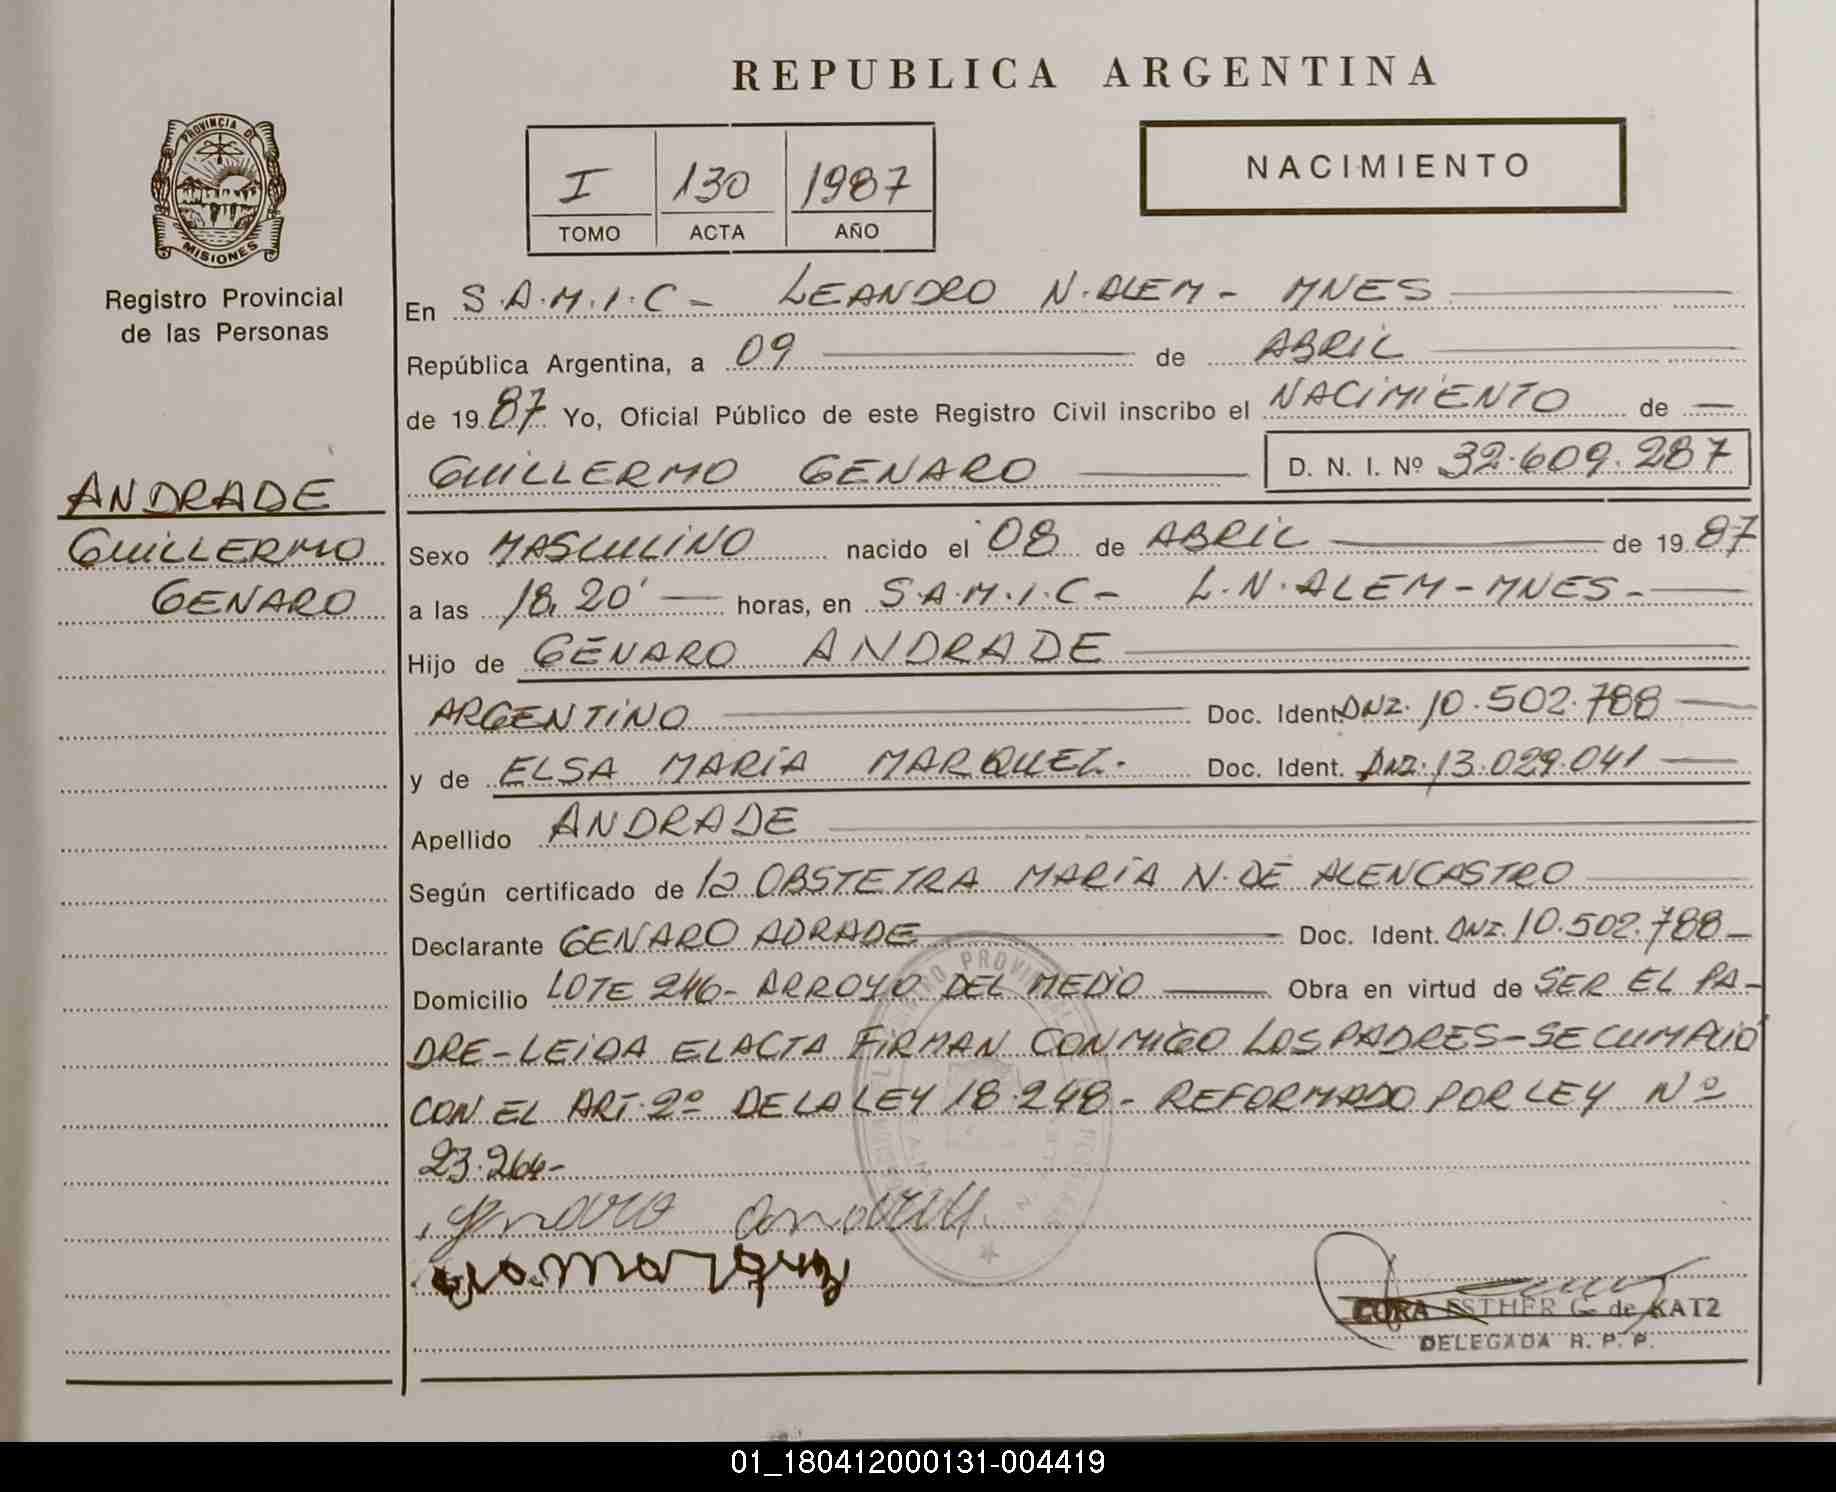 REPUBLICA ARGENTINA
PROVINCIA DE
MISIONES
Registro Provincial
de las Personas
I 130 1987
TOMO ACTA AÑO
NACIMIENTO
En S.A.M.I.C - LEANDRO N. ALEM - MNES
República Argentina, a 09 de ABRIL
de 19 87 Yo, Oficial Público de este Registro Civil inscribo el NACIMIENTO de —
GUILLERMO GENARO D. N. I. Nº 32.609.287
ANDRADE
GUILLERMO
GENARO
Sexo MASCULINO nacido el 08 de ABRIL de 19 87
a las 18,20' horas, en S.A.M.I.C - L.N. ALEM - MNES -
Hijo de GENARO ANDRADE
ARGENTINO Doc. Ident. DNI. 10.502.788
y de ELSA MARIA MARQUEZ. Doc. Ident. DNI. 13.029.041
Apellido ANDRADE
Según certificado de la OBSTETRA MARÍA N. DE ALENCASTRO
Declarante GENARO ADRADE Doc. Ident. DNI. 10.502.788 -
Domicilio LOTE 246 - ARROYO DEL MEDIO Obra en virtud de SER EL PA-
DRE - LEIDA EL ACTA FIRMAN CONMIGO LOS PADRES - SE CUMPLIO
CON EL ART. 2º DE LA LEY 18.248 - REFORMADO POR LEY Nº
23.264 -
genaro andrade
marquez
CORA ESTHER G. de KATZ
DELEGADA R. P. P.
01_180412000131-004419